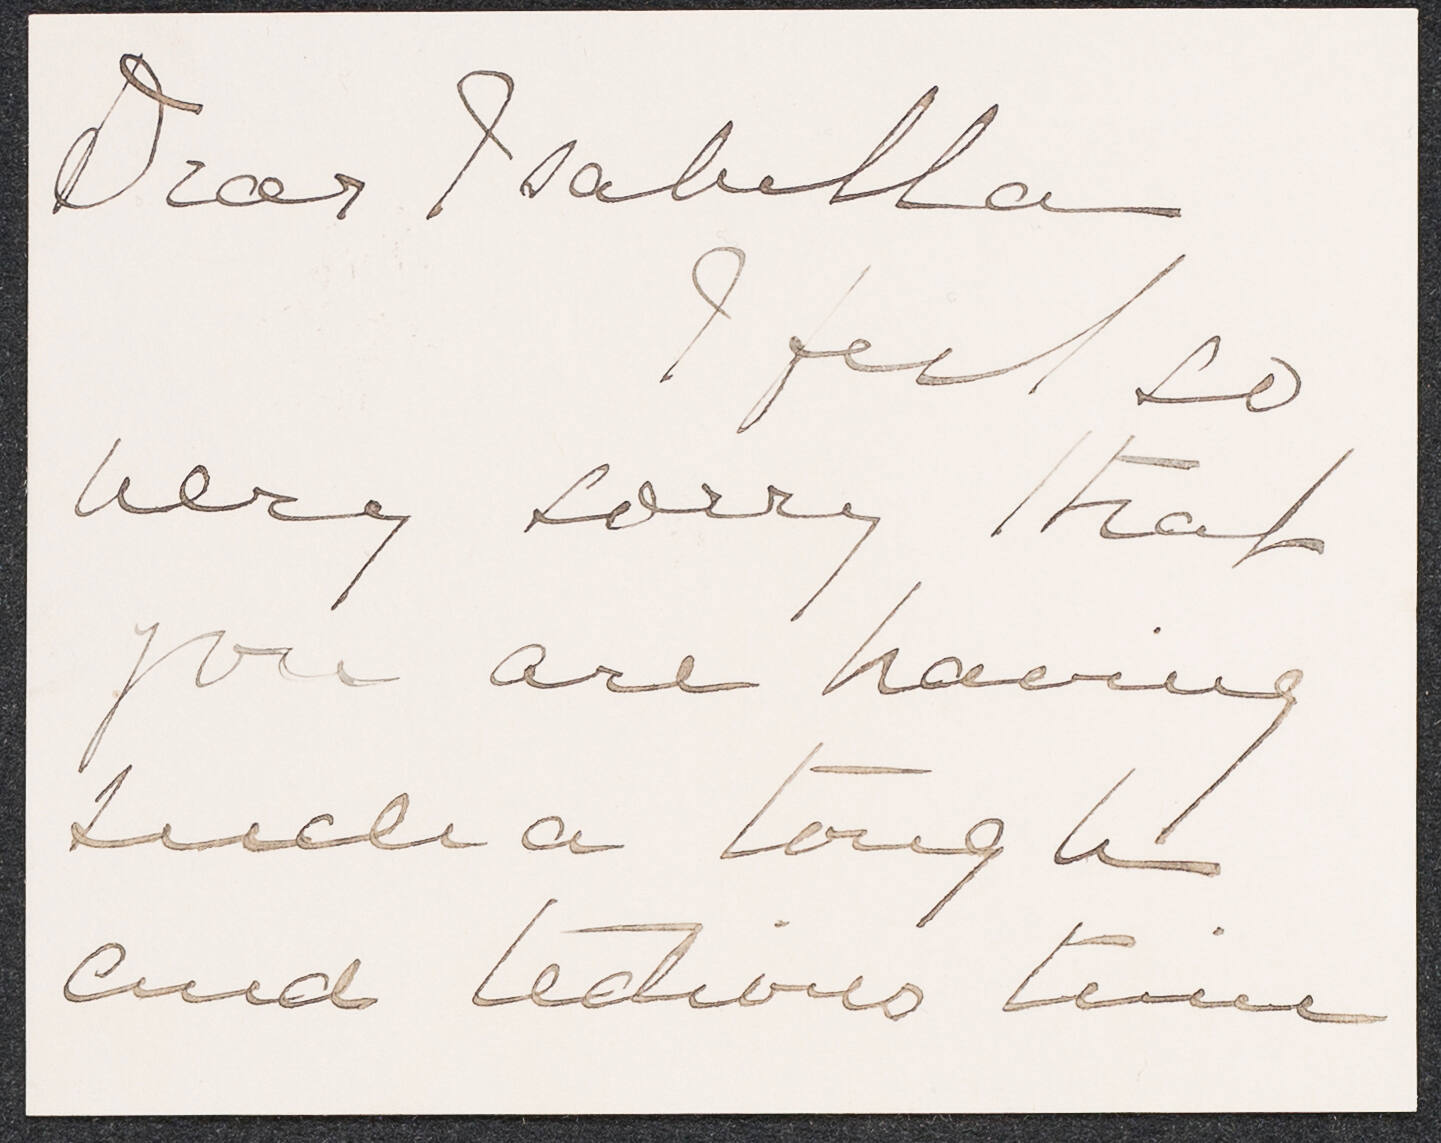 Dear Isabella
I feel so
very sorry that
you are having
such a tough
and tedious time